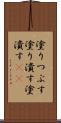 塗りつぶす
塗り潰す塗
潰す